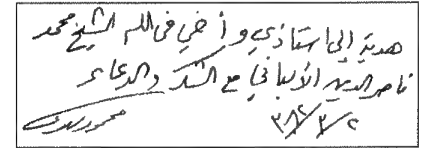 هدية إلى استاذي و أخي في الله الشيخ محمد
ناصر الدين الألباني مع الشكر والدعاء
٣٨٢/٣/٢